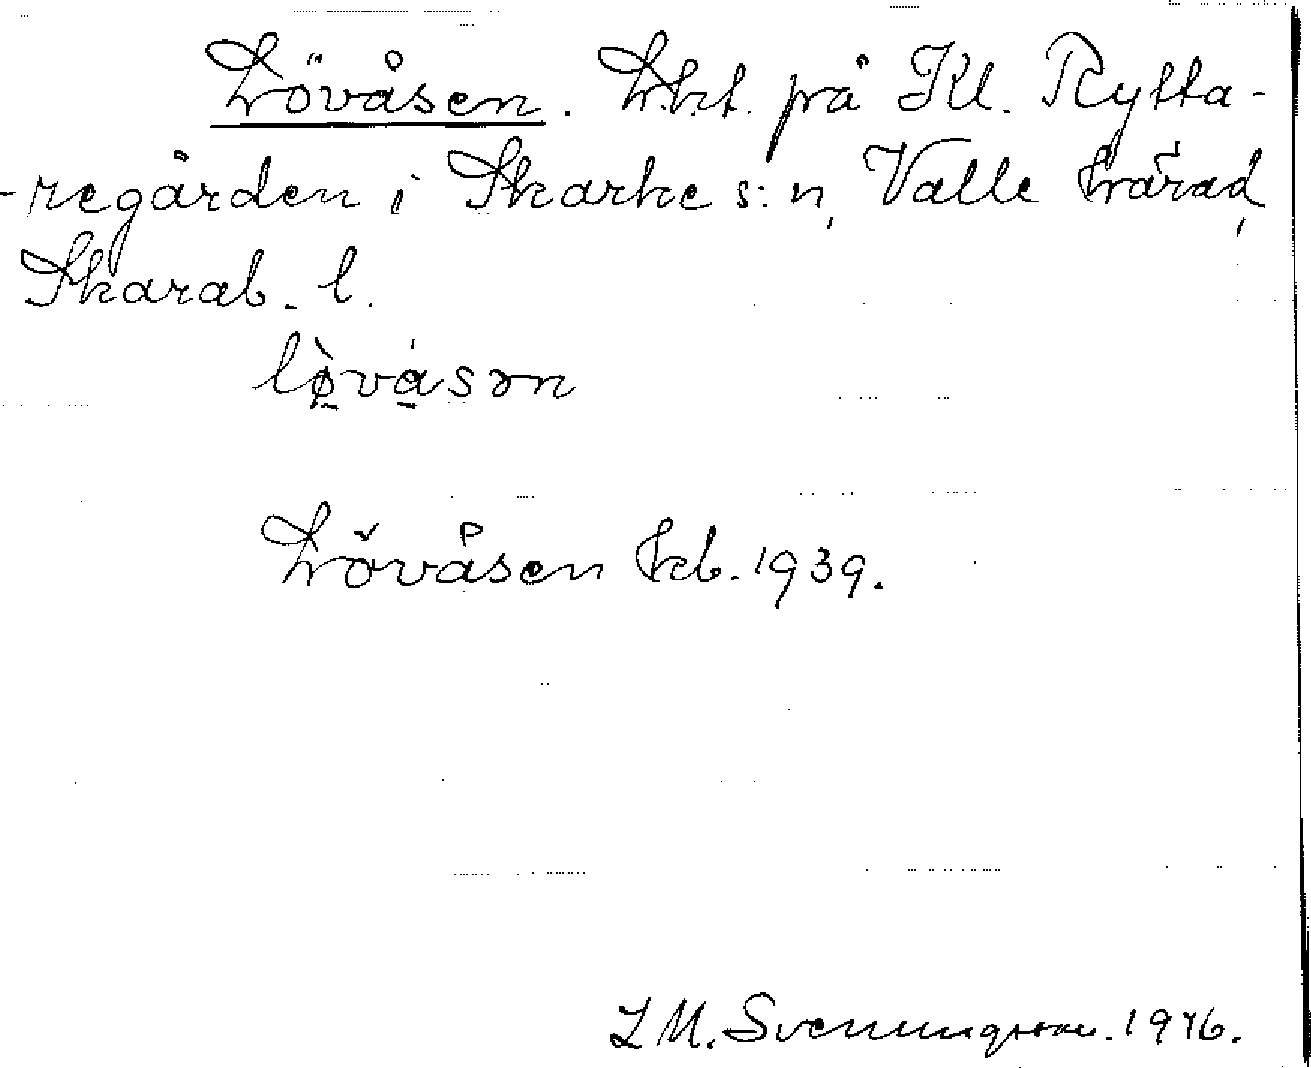 Lövåsen. Lht. på Kl. Rytta-
-regården i Skarke s:n, Valle härad,
Skarab. l.
lö̀våsən
Lövåsen kb. 1939.
L M. Svenungsson. 1946.